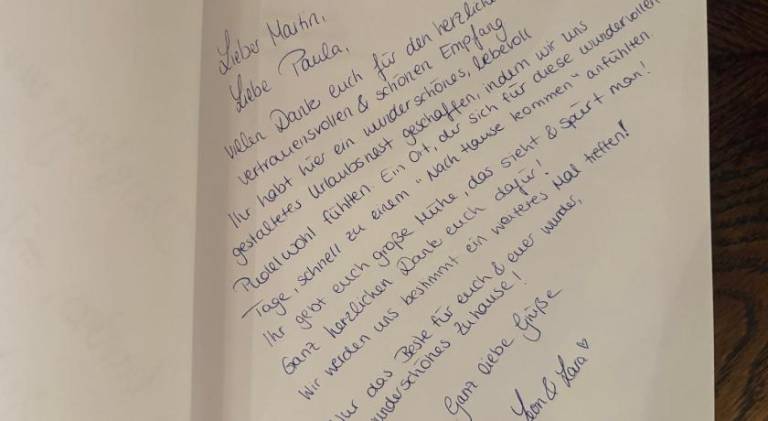 Lieber Martin,
Liebe Paula,
vielen Dank euch für den herzlichen
vertrauensvollen & schönen Empfang
Ihr habt hier ein wunderschönes, liebevoll
gestaltetes Urlaubsnest geschaffen, indem wir uns
Pudelwohl fühlten. Ein Ort, der sich für diese wundervollen
Tage, schnell zu einem "Nach Hause kommen" anfühlten.
Ihr gebt euch große Mühe, das sieht & spürt man!
Ganz herzlichen Dank euch dafür!
Wir werden uns bestimmt ein weiteres Mal treffen!
Nur das Beste für euch & euer wunder,
wunderschönes Zuhause!
Ganz liebe Grüße
Leon & Lara